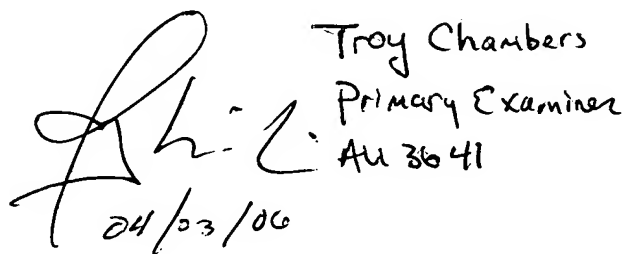 Troy Chambers
Primary Examiner
AU 3641
04/03/06